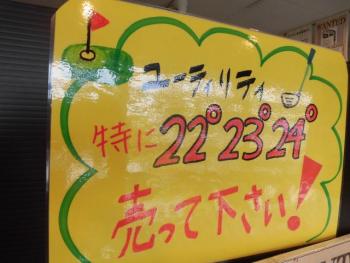 WANTED
ユーティリティ
特に22°23°24°
売って下さい!